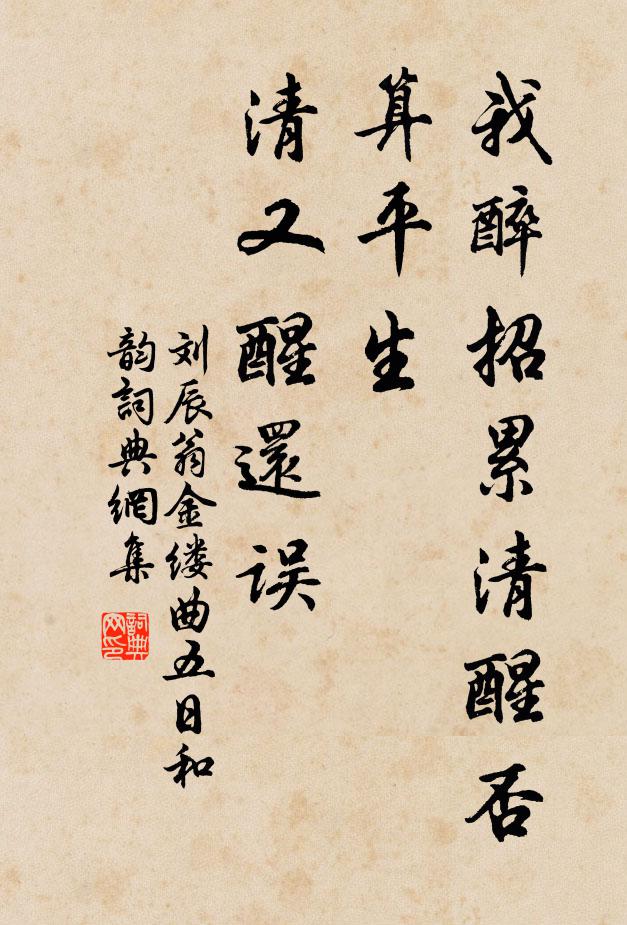 我醉招累清醒否
算平生
清又醒還误
刘辰翁金缕曲五日和
韵詞典網集
詞典
网印